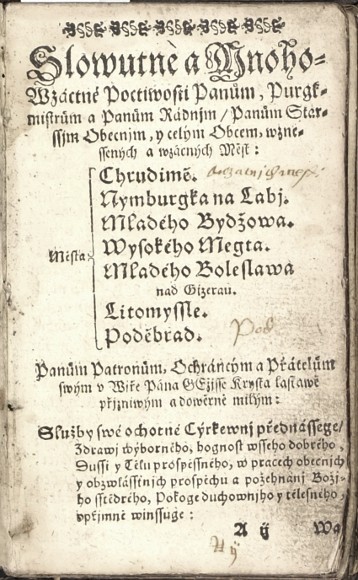 Slowutnè a Mnoho-
Wzáctné Poctiwosti Panům, Purgk-
mistrům a Panům Rádnjm / Panům Star-
ssjm Obecnjm, y celým Obcem, wzne-
ssených a wzácných Měst:
Chrudimě.
Nymburgka na Labj.
Mladého Bydžowa.
Wysokého Meyta.
Města
Mladého Boleslawa
nad Gizerau.
Litomyssle.
Poděbrad. Pod
Panům Patronům, Ochráncým a Přátelům
swým v Wjře Pána GEžjsse Krysta laskawě
přjzniwým a dowěrně milým:
Služby swé ochotné Cýrkewnj přednássege /
Zdrawj wýborného, hognost wsseho dobrého,
Dussi y Tělu prospěssného, w pracech obecnjch
y obzwlásstnjch prospěchu a požehnanj Božj-
ho sstědrého, Pokoge duchownjho y tělesného,
vpřjmně winssuge:
A ij Wa
A ij